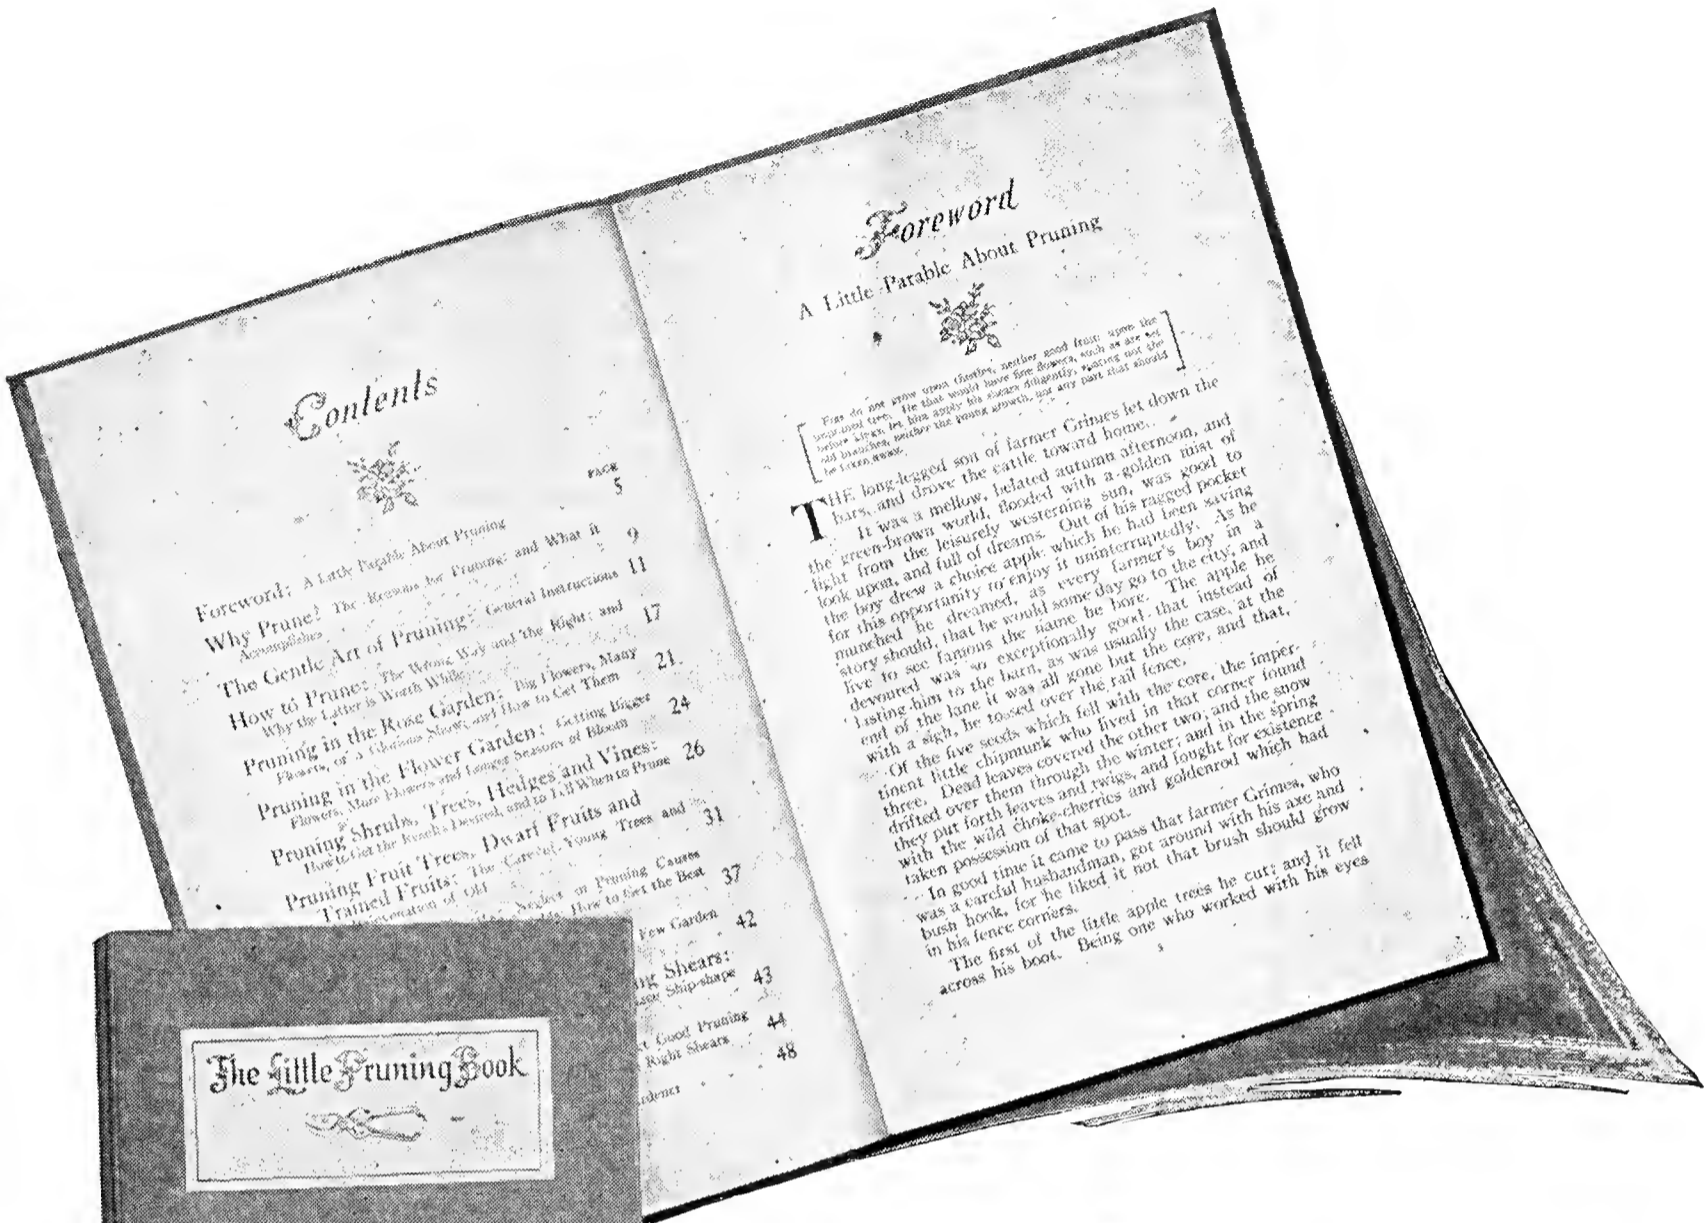 Contents
PAGE
Foreword: A Little Parable About Pruning 5
Why Prune? The Reasons for Pruning: and What it
Accomplishes 9
The Gentle Art of Pruning: General Instructions 11
How to Prune: The Wrong Way and the Right; and
Why the Latter is Worth While 17
Pruning in the Rose Garden: Big Flowers, Many
Flowers, or a Glorious Show, and How to Get Them 21
Pruning in the Flower Garden: Getting Bigger
Flowers, More Flowers and Longer Seasons of Bloom 24
Pruning Shrubs, Trees, Hedges and Vines:
How to Get the Results Desired, and to Tell When to Prune 26
Pruning Fruit Trees, Dwarf Fruits and
Trained Fruits: The Care of Young Trees and
of Old 31
Neglect in Pruning Causes
How to Get the Best 37
Few Garden
42
Shears:
Ship-shape 43
Good Pruning
Right Shears 44
48
Foreword
A Little Parable About Pruning
Figs do not grow upon thistles, neither good fruit upon the
unpruned tree. He that would have fine flowers, such as are set
before kings, let him apply his shears diligently, sparing not the
old branches, neither the young growth, nor any part that should
be taken away.
THE long-legged son of farmer Grimes let down the
bars, and drove the cattle toward home.
It was a mellow, belated autumn afternoon, and
the green-brown world, flooded with a golden mist of
light from the leisurely westerning sun, was good to
look upon, and full of dreams. Out of his ragged pocket
the boy drew a choice apple which he had been saving
for this opportunity to enjoy it uninterruptedly. As he
munched he dreamed, as every farmer's boy in a
story should, that he would some day go to the city, and
live to see famous the name he bore. The apple he
devoured was so exceptionally good that instead of
lasting him to the barn, as was usually the case, at the
end of the lane it was all gone but the core, and that,
with a sigh, he tossed over the rail fence.
Of the five seeds which fell with the core, the imper-
tinent little chipmunk who lived in that corner found
three. Dead leaves covered the other two; and the snow
drifted over them through the winter; and in the spring
they put forth leaves and twigs, and fought for existence
with the wild choke-cherries and goldenrod which had
taken possession of that spot.
In good time it came to pass that farmer Grimes, who
was a careful husbandman, got around with his axe and
bush hook, for he liked it not that brush should grow
in his fence corners.
The first of the little apple trees he cut; and it fell
across his boot. Being one who worked with his eyes
The Little Pruning Book